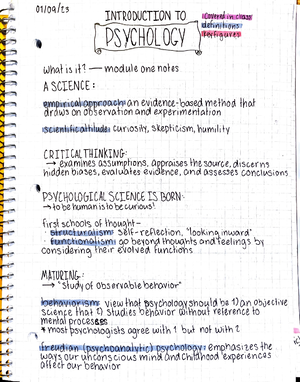 01/09/23
INTRODUCTION TO
PSYCHOLOGY
covered in class
definitions
key figures
what is it? — module one notes
A SCIENCE:
empirical approach: an evidence-based method that
draws on observation and experimentation
scientific attitude: curiosity, skepticism, humility
CRITICAL THINKING:
→ examines assumptions, appraises the source, discerns
hidden biases, evaluates evidence, and assesses conclusions
PSYCHOLOGICAL SCIENCE IS BORN:
→ to be human is to be curious!
first schools of thought–
structuralism: self-reflection, "looking inward"
functionalism: go beyond thoughts and feelings by
considering their evolved functions
MATURING:
→ "study of observable behavior"
behaviorism: view that psychology should be 1) an objective
science that 2) studies behavior without reference to
mental processes
* most psychologists agree with 1 but not with 2
freudian (psychoanalytic) psychology: emphasizes the
ways our unconscious mind and childhood experiences
affect our behavior